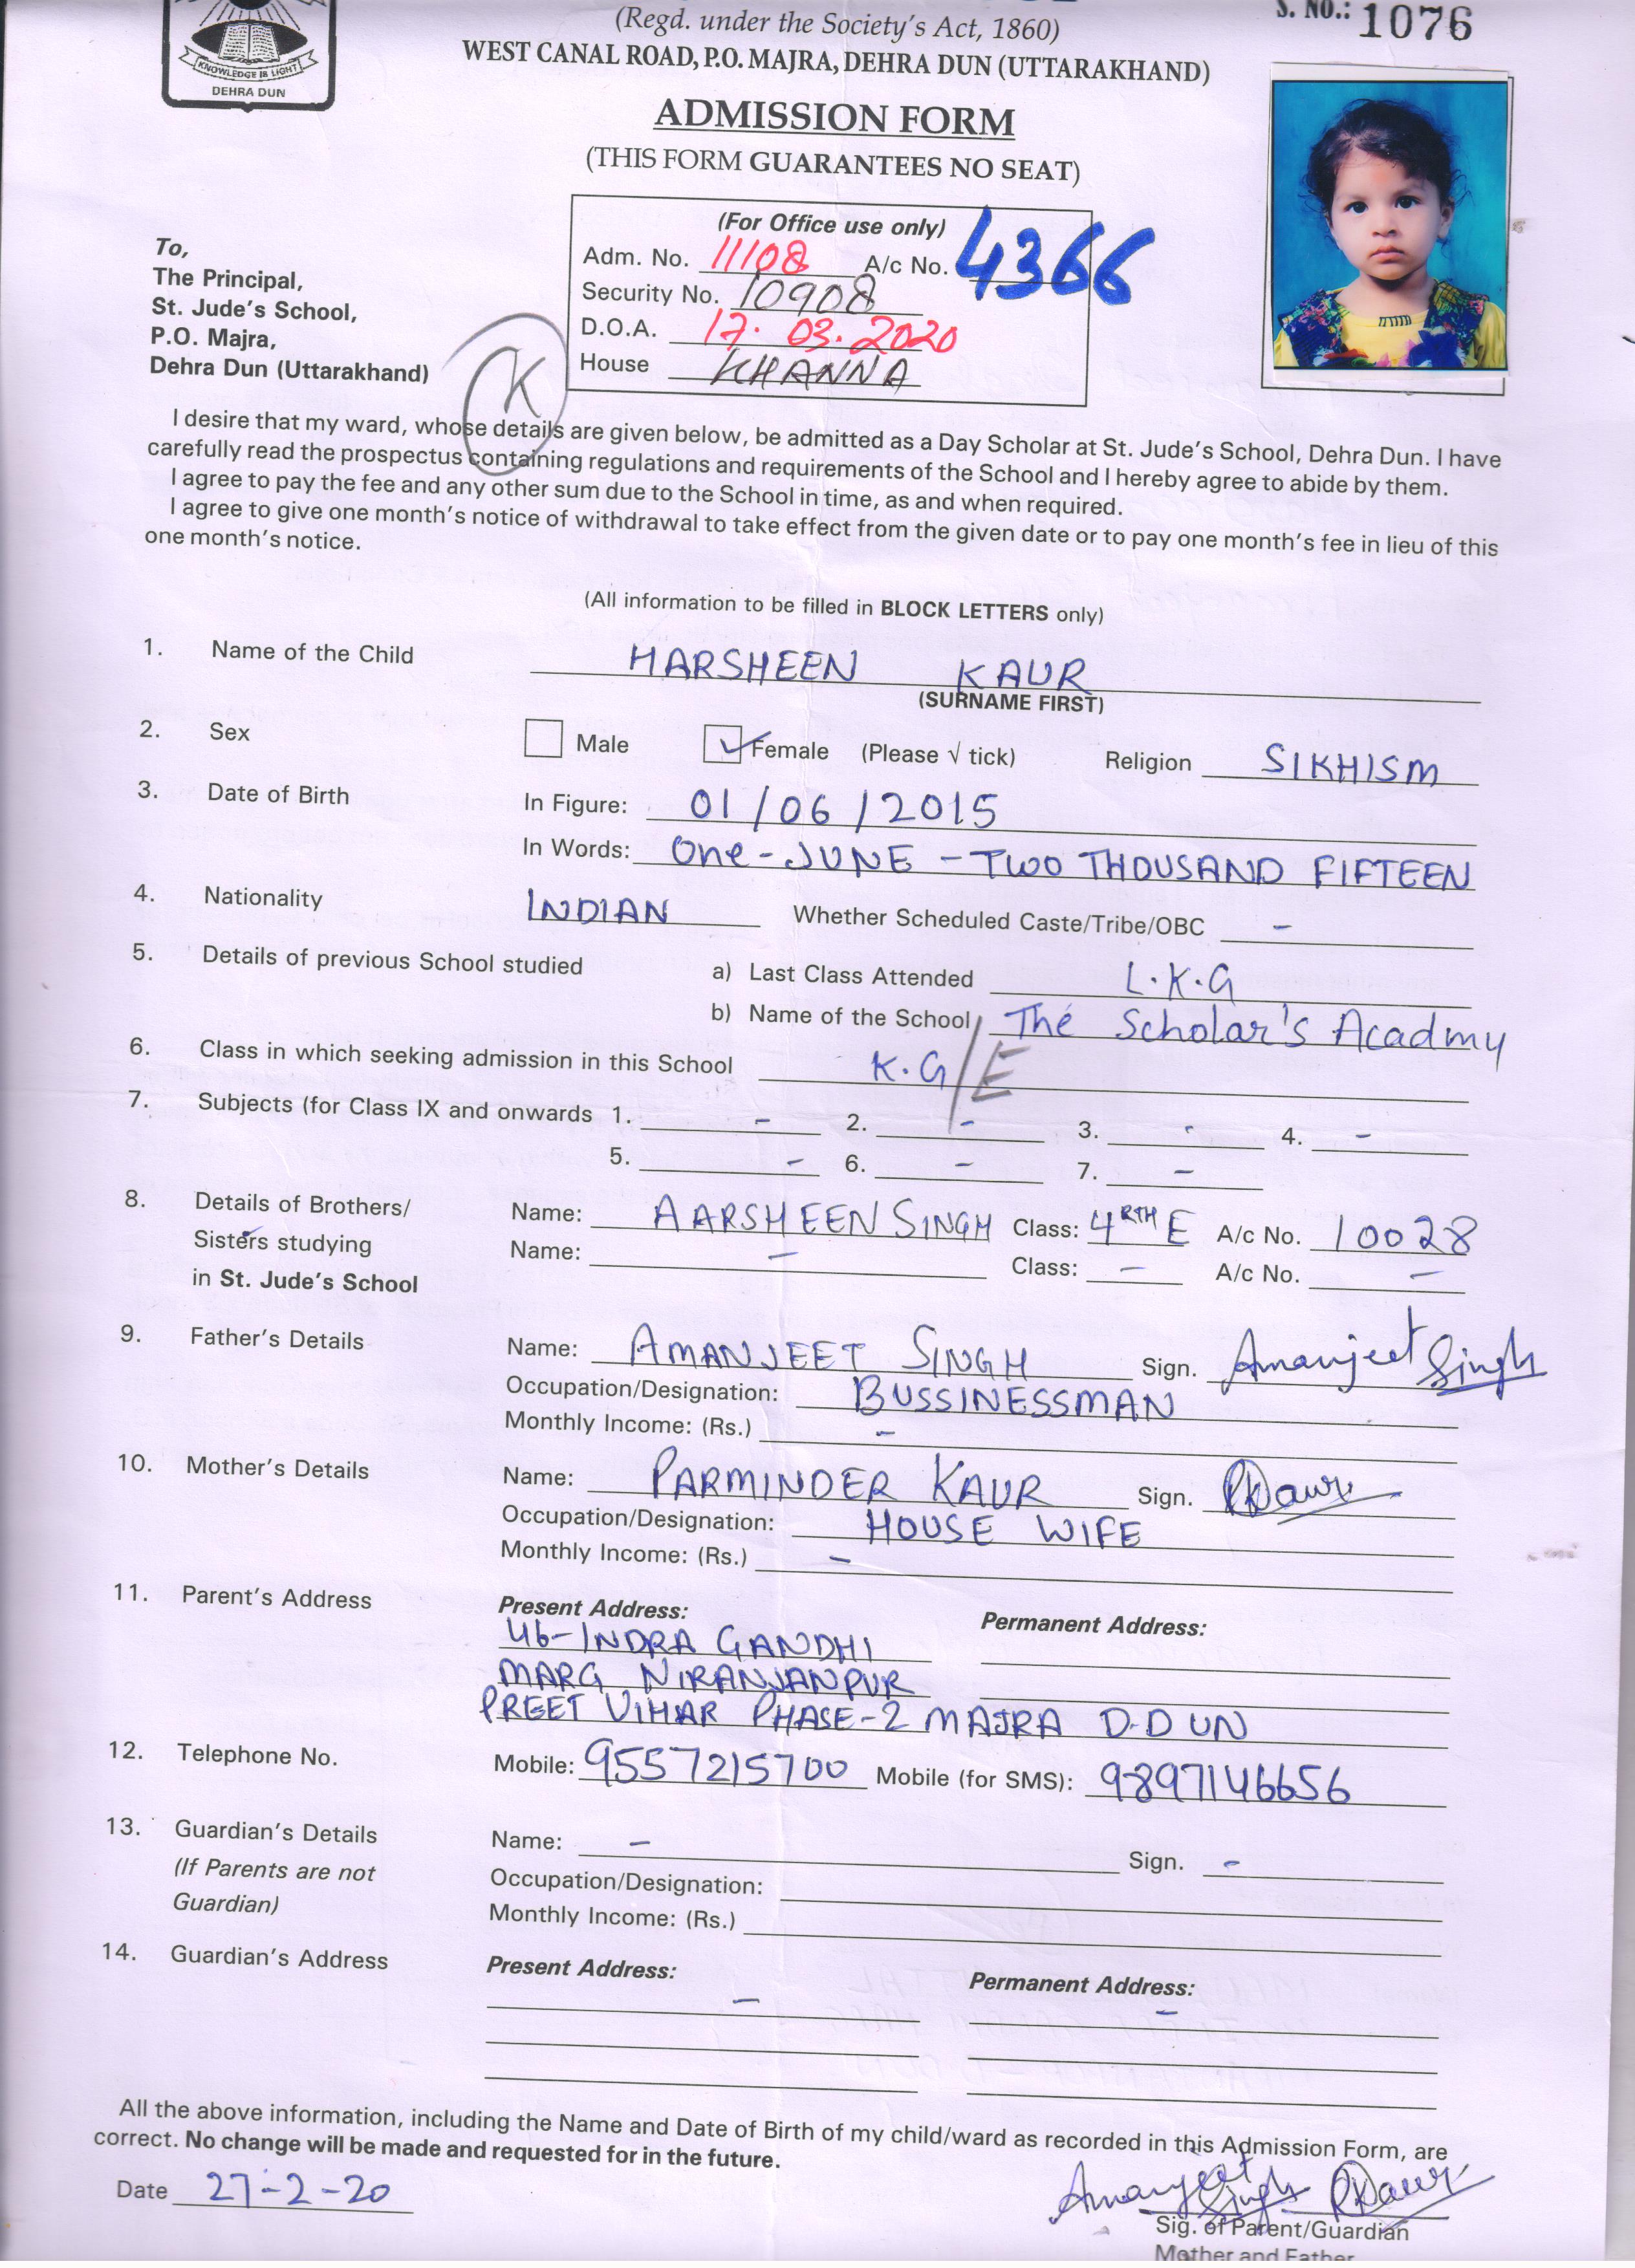 (Regd. under the Society's Act, 1860)
S. NO.: 1076
WEST CANAL ROAD, P.O. MAJRA, DEHRA DUN (UTTARAKHAND)
KNOWLEDGE IS LIGHT
DEHRA DUN
ADMISSION FORM
(THIS FORM GUARANTEES NO SEAT)
(For Office use only)
Adm. No. 11108 A/c No. 4366
Security No. 10908
D.O.A. 17.03.2020
House KHANNA
To,
The Principal,
St. Jude's School,
P.O. Majra,
Dehra Dun (Uttarakhand)
K
I desire that my ward, whose details are given below, be admitted as a Day Scholar at St. Jude's School, Dehra Dun. I have
carefully read the prospectus containing regulations and requirements of the School and I hereby agree to abide by them.
I agree to pay the fee and any other sum due to the School in time, as and when required.
I agree to give one month's notice of withdrawal to take effect from the given date or to pay one month's fee in lieu of this
one month's notice.
(All information to be filled in BLOCK LETTERS only)
1. Name of the Child HARSHEEN KAUR
(SURNAME FIRST)
2. Sex Male Female (Please √ tick) Religion SIKHISM
3. Date of Birth In Figure: 01/06/2015
In Words: One - JUNE - TWO THOUSAND FIFTEEN
4. Nationality INDIAN Whether Scheduled Caste/Tribe/OBC -
5. Details of previous School studied a) Last Class Attended L.K.G
b) Name of the School The Scholar's Acadmy
6. Class in which seeking admission in this School K.G/E
7. Subjects (for Class IX and onwards 1. - 2. - 3. - 4. -
5. - 6. - 7. -
8. Details of Brothers/ Name: AARSHEEN SINGH Class: 4RTH E A/c No. 10028
Sisters studying Name: - Class: - A/c No. -
in St. Jude's School
9. Father's Details Name: AMANJEET SINGH Sign. Amanjeet Singh
Occupation/Designation: BUSSINESSMAN
Monthly Income: (Rs.) -
10. Mother's Details Name: PARMINDER KAUR Sign. PKaur
Occupation/Designation: HOUSE WIFE
Monthly Income: (Rs.) -
11. Parent's Address Present Address: Permanent Address:
46-INDRA GANDHI
MARG NIRANJANPUR
PREET VIHAR PHASE-2 MAJRA D.DUN
12. Telephone No. Mobile: 9557215700 Mobile (for SMS): 9897146656
13. Guardian's Details Name: - Sign. -
(If Parents are not Occupation/Designation:
Guardian) Monthly Income: (Rs.)
14. Guardian's Address Present Address: - Permanent Address: -
All the above information, including the Name and Date of Birth of my child/ward as recorded in this Admission Form, are
correct. No change will be made and requested for in the future.
Date 27-2-20 Amanjeet Singh PKaur
Sig. of Parent/Guardian
Mother and Father